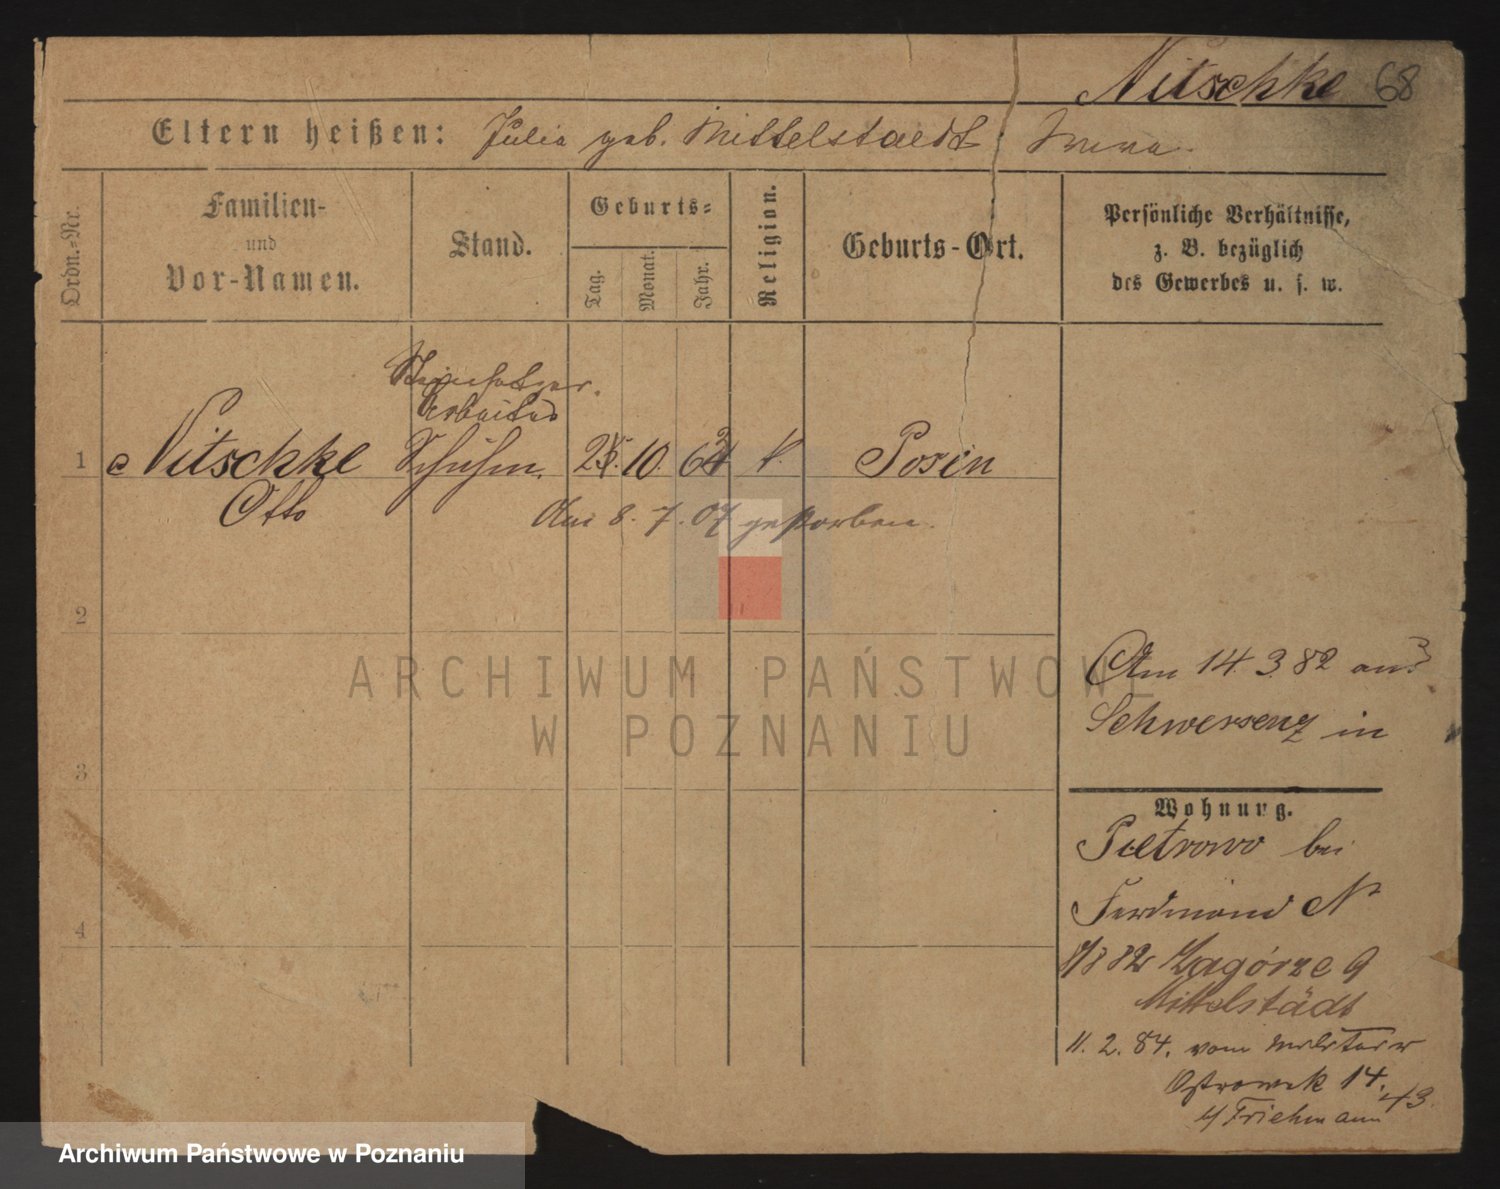 Nitschke 68
Eltern heißen: Julia geb. Mittelstaedt
Ordn.-Nr.
Familien-
und
Vor-Namen.
Stand.
Geburts-
Tag.
Monat.
Jahr.
Religion.
Geburts-Ort.
Persönliche Verhältnisse,
z. B. bezüglich
des Gewerbes u. s. w.
Steinsetzer
Arbeiter
1 Nitschke Schuhm. 10. k. Posen
Otto
Am 8. 7. 07 gestorben.
2
ARCHIWUM PAŃSTWOWE
W POZNANIU
3
4
Am 14 3 82 aus
Schwersenz in
Wohnung.
Pietrowo bei
Ferdinand N
82 Zagórze 9
Mittelstädt
11. 2. 84. vom Militair
Ostrowek 14.
b/ Friehmann
Archiwum Państwowe w Poznaniu